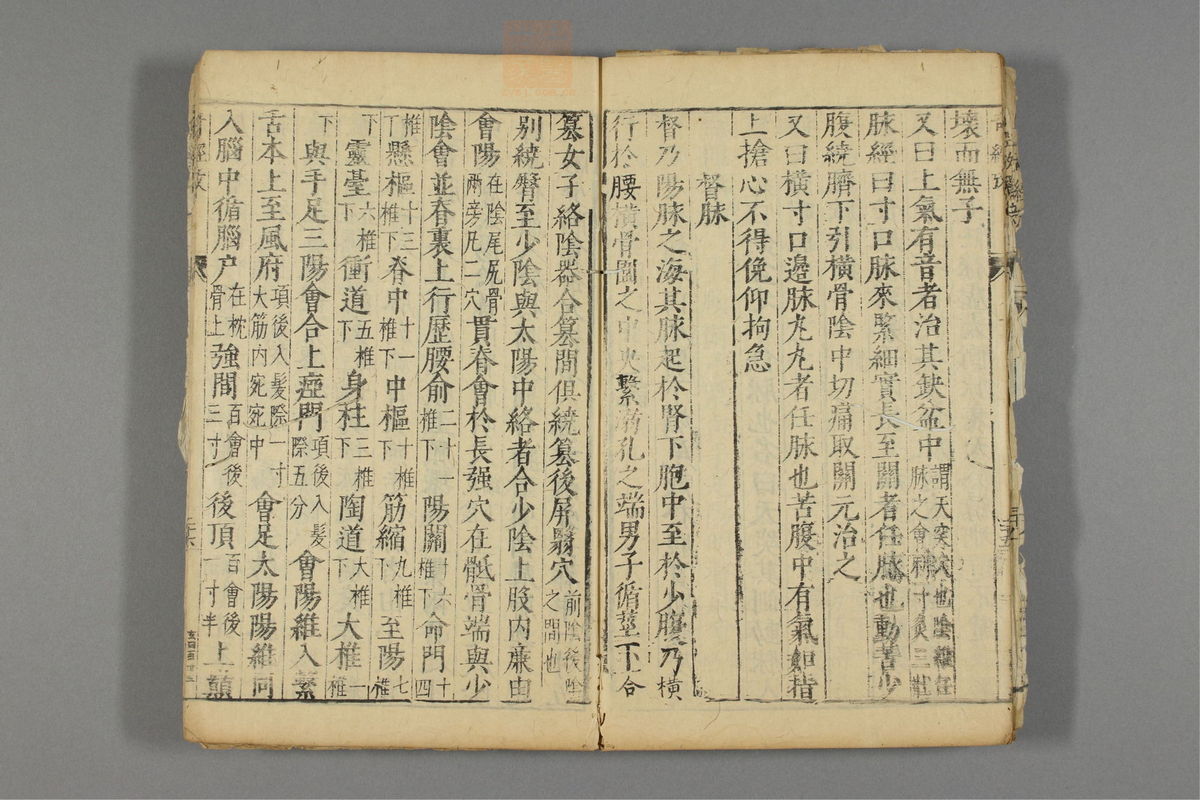 壞而無子
又曰上氣有音者治其缺盆中謂天突穴也陰維任脉之會刺一寸灸三壯
脉經曰寸口脉來緊細實長至關者任脉也動苦少
腹繞臍下引橫骨陰中切痛取關元治之
又曰橫寸口邊脉丸丸者任脉也苦腹中有氣如指
上搶心不得俛仰拘急
督脉
督乃陽脉之海其脉起於腎下胞中至於少腹乃橫
行於腰橫骨圍之中央繫溺孔之端男子循莖下合
篡女子絡陰器合篡間俱繞篡後屏翳穴前陰後陰之間也
別繞臀至少陰與太陽中絡者合少陰上股內廉由
會陽在陰尾尻骨兩旁凡二穴貫脊會於長强穴在骶骨端與少
陰會並脊裏上行歷腰俞二十一椎下陽關十六椎下命門十四
椎下懸樞十三椎下脊中十一椎下中樞十椎下筋縮九椎下至陽七椎
下靈臺六椎下衝道五椎下身柱三椎下陶道大椎下大椎一椎
下與手足三陽會合上瘂門項後入髮際五分會陽維入繫
舌本上至風府項後入髮際一寸大筋內宛宛中會足太陽陽維同
入腦中循腦户在枕骨上強間百會後三寸後頂百會後一寸半上巔